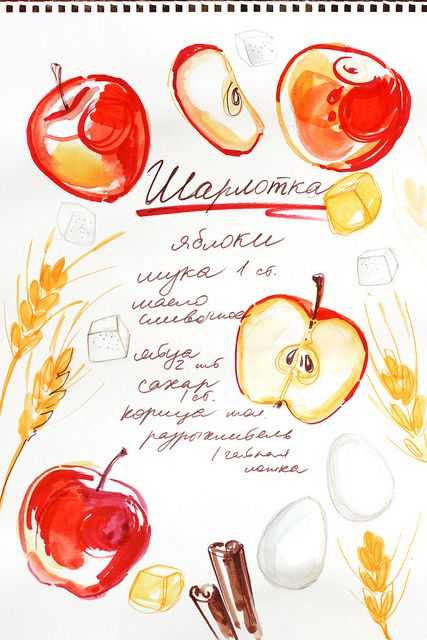 Шарлотка
яблоки
мука 1 ст.
масло
сливочное
яйца
2 шт
сахар
1 ст.
корица мол.
разрыхлитель
1 чайная
ложка